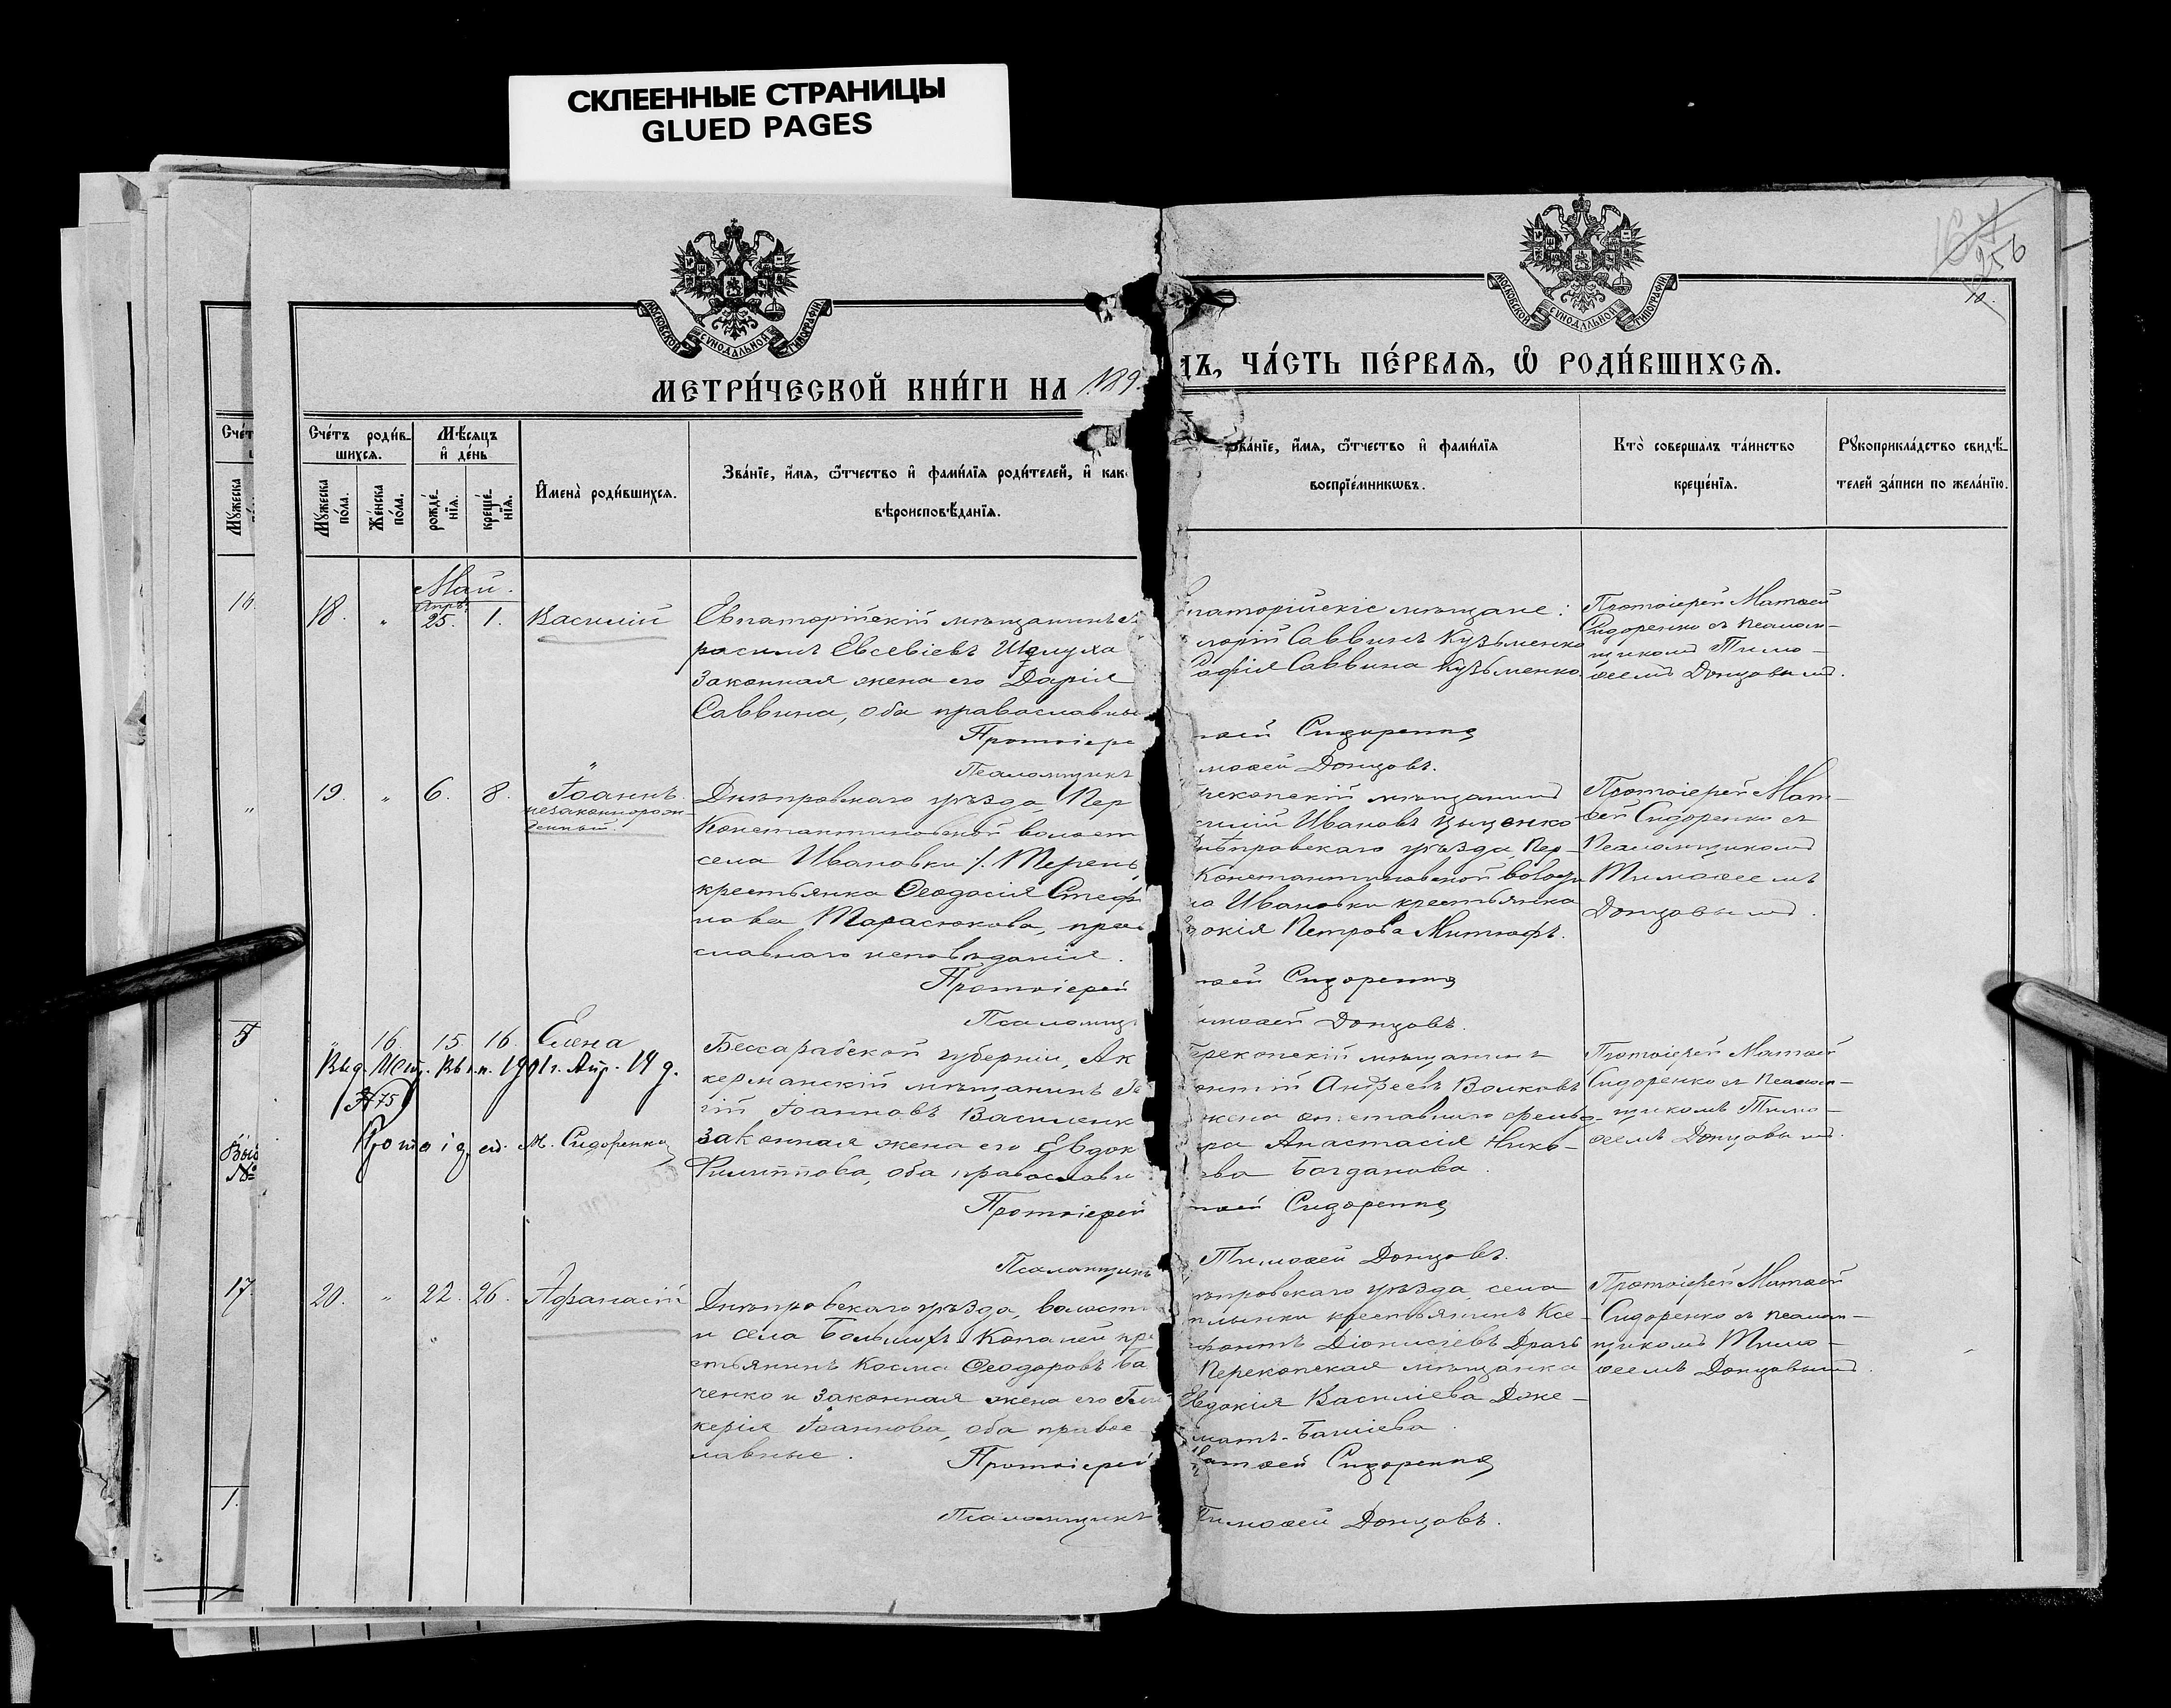 СКЛЕЕННЫЕ СТРАНИЦЫ
GLUED PAGES
МОСКОВСКОЙ СУНОДАЛЬНОЙ ТИПОГРАФІИ
МОСКОВСКОЙ СУНОДАЛЬНОЙ ТИПОГРАФІИ
256
10.
МЕТРИ́ЧЕСКОЙ КНИ́ГИ НА 189
ДЪ, ЧА́СТЬ ПЕ́РВАѦ, Ѡ РОДИ́ВШИХСѦ.
Сче́тъ роди́в-
шихся.
Мѣсяцъ
и де́нь
Мужеска по́ла.
Же́нска по́ла.
рожде́нія.
креще́нія.
Имена̀ роди́вшихся.
Зва́ніе, и́мя, ѻ́тчество и фами́лія роди́телей, и как
вѣроисповѣ́данія.
Зва́ніе, и́мя, ѻ́тчество и фами́лія
воспріе́мниковъ.
Кто̀ соверша́лъ та́инство
креще́нія.
Рукоприкла́дство свидѣ́-
телей за́писи по жела́нію.
Май.
18. " Апр. 25. 1. Василій
Евпаторійскій мѣщанинъ
расимъ Евсевіевъ Шалуха
Законная жена его Дарія
Саввина, оба православны
Протоіере
Псаломщикъ
паторійскіе мѣщане:
Саввинъ Кузьменко
Софія Саввина Кузьменко
ѳей Сидоренко
моѳей Донцовъ.
Протоіерей Матѳей
Сидоренко съ псалом-
щикомъ Тимо-
ѳеемъ Донцовымъ.
19. " 6. 8. Іоаннъ
незаконнорож-
денный.
Днѣпровскаго уѣзда, Пер
Константиновской волост
села Ивановки
крестьянка Ѳеодосія Стеф
нова Тарасюкова, прав
славнаго исповѣданія.
Протоіерей
Псаломщ
рекопскій мѣщанинъ
силій Ивановъ
Днѣпровскаго уѣзда Пер-
Константиновской волос
ла Ивановки крестьянка
докія Петрова
ѳей Сидоренко
имоѳей Донцовъ.
Протоіерей Мат-
ѳей Сидоренко съ
Псаломщикомъ
Тимоѳеемъ
Донцовымъ.
" 16. 15. 16. Елена
Выд. Мет. Вып. 1901 г. Апр. 14 д.
№ 75
Протоіер. М. Сидоренко
Бессарабской губерніи, Ак
керманскій мѣщанинъ
гій Іоанновъ Василенк
Законная жена его Евдок
Филиппова, оба православн
Протоіерей
Псаломщикъ
Перекопскій мѣщанинъ
Андреевъ Волковъ
жена отставного фельд-
ра Анастасія Нико-
ева Богданова.
ѳей Сидоренко
Тимоѳей Донцовъ.
Протоіерей Матѳей
Сидоренко съ Псалом-
щикомъ Тимо-
ѳеемъ Донцовымъ.
20. " 22. 26. Аѳанасій
Днѣпровскаго уѣзда, волости
и села Большихъ Копаней кре
стьянинъ Косма Ѳеодоровъ Ба
ченко и Законная жена его Гли
керія Іоаннова, оба правос
лавные.
Протоіерей
Псаломщикъ
ѣпровскаго уѣзда, села
крестьянинъ Ксе-
фонтъ Діонисіевъ Драчъ
Перекопская мѣщанка
Евдокія Василіева Дже-
матъ-Башіева.
Матѳей Сидоренко
Тимоѳей Донцовъ.
Протоіерей Матѳей
Сидоренко съ псалом-
щикомъ Тимо-
ѳеемъ Донцовымъ.